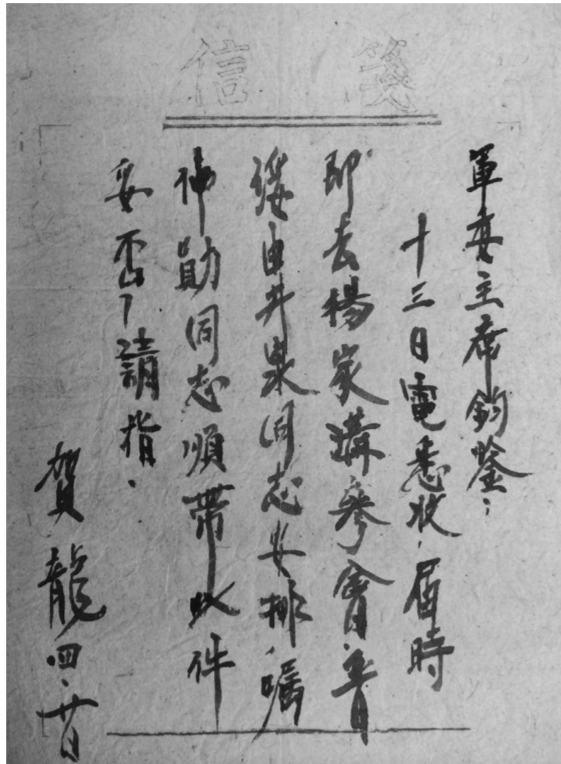 信箋
軍委主席鈞鑒：
十三日電悉收，屆時
即去楊家溝參會，晉
綏由井泉同志安排，囑
仲勛同志順帶此件
妥否？請指．
賀龍 四、廿日